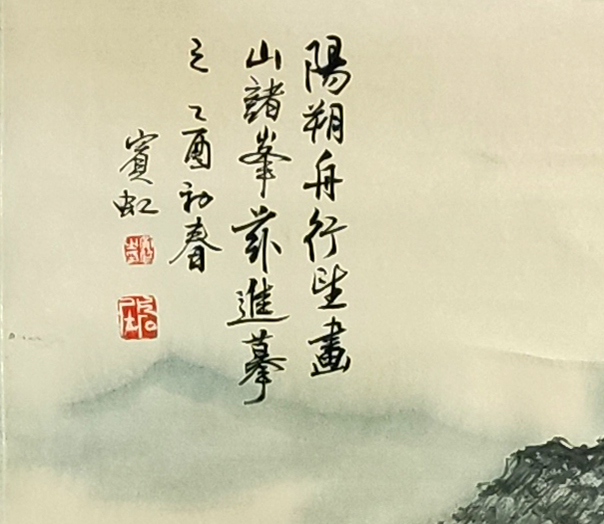 陽朔舟行望畫
山諸峯茲進摹
之 乙酉初春
賓虹